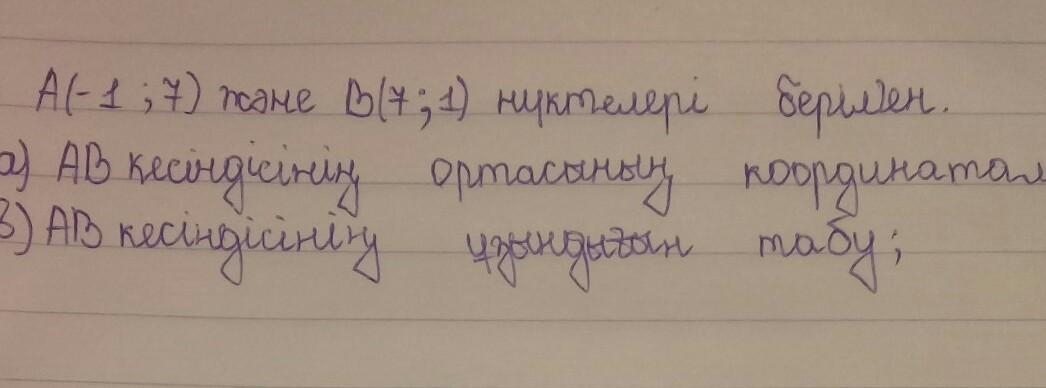 A(-1 ; 7) және B(7 ; 1) нүктелері берілген.
а) AB кесіндісінің ортасының координатал
в) AB кесіндісінің ұзындығын табу;